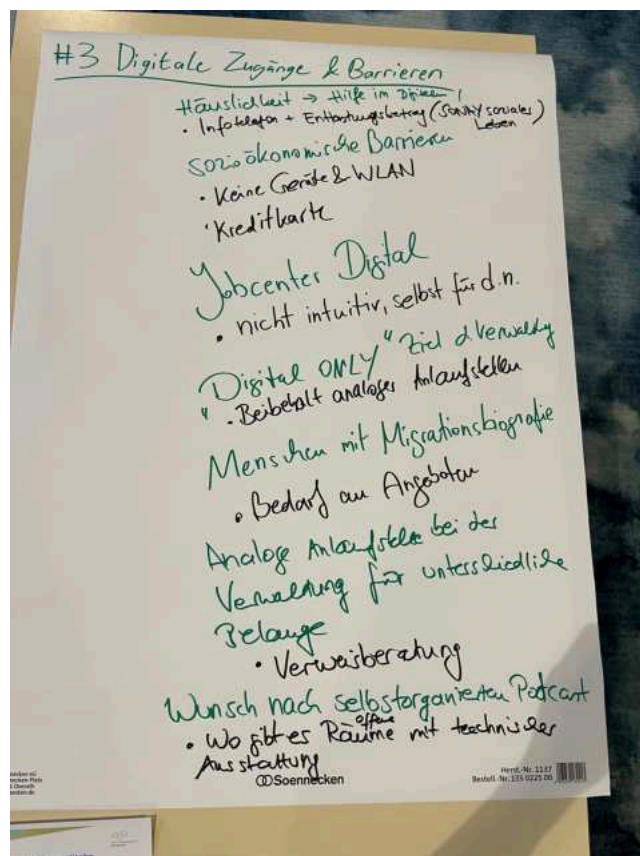 #3 Digitale Zugänge & Barrieren
Häuslichkeit → Hilfe im Digitalen!
• Infotelefon + Entlastungsbetrag (soziales)
Leben
Sozioökonomische Barrieren
• Keine Geräte & WLAN
• Kreditkarte
Jobcenter Digital
• nicht intuitiv, selbst für d.n.
"Digital ONLY" Ziel d Verwaltung
• Beibehalt analoger Anlaufstellen
Menschen mit Migrationsbiografie
• Bedarf an Angeboten
Analoge Anlaufstelle bei der
Verwaltung für unterschiedliche
Belange
• Verweisberatung
Wunsch nach selbstorganisierten Podcast
• Wo gibt es offene Räume mit technischer
Ausstattung
Soennecken
Herst.-Nr. 1137
Bestell.-Nr. 155 0225 00